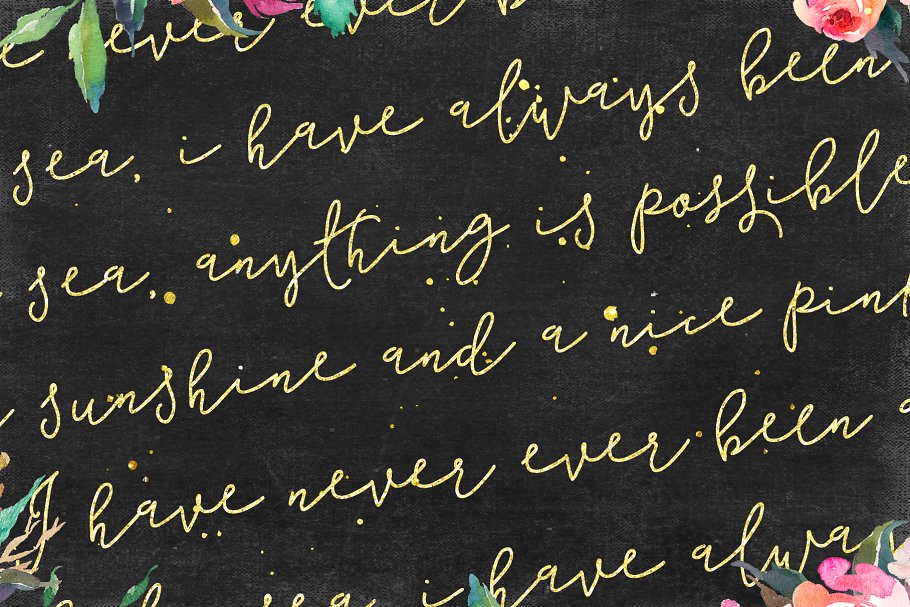 ever ever b
sea, i have always been
sea, anything is possible
sunshine and a nice pink
I have never ever been a
sea, i have alwa